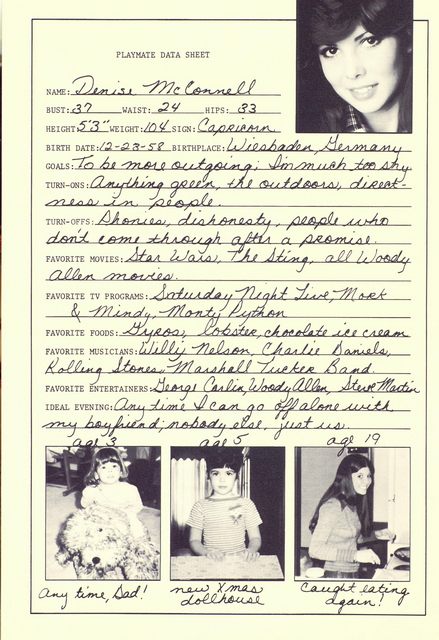 PLAYMATE DATA SHEET
NAME: Denise McConnell
BUST: 37 WAIST: 24 HIPS: 33
HEIGHT: 5'3" WEIGHT: 104 SIGN: Capricorn
BIRTH DATE: 12-23-58 BIRTHPLACE: Wiesbaden, Germany
GOALS: To be more outgoing; I'm much too shy.
TURN-ONS: Anything green, the outdoors, direct-
ness in people.
TURN-OFFS: Phonies, dishonesty, people who
don't come through after a promise.
FAVORITE MOVIES: Star Wars, The Sting, all Woody
Allen movies.
FAVORITE TV PROGRAMS: Saturday Night Live, Mork
& Mindy, Monty Python
FAVORITE FOODS: Gyros, lobster, chocolate ice cream
FAVORITE MUSICIANS: Willy Nelson, Charlie Daniels,
Rolling Stones, Marshall Tucker Band.
FAVORITE ENTERTAINERS: George Carlin, Woody Allen, Steve Martin
IDEAL EVENING: Any time I can go off alone with
my boyfriend; nobody else, just us.
age 3 age 5 age 19
any time, Dad! new Xmas dollhouse Caught eating again!